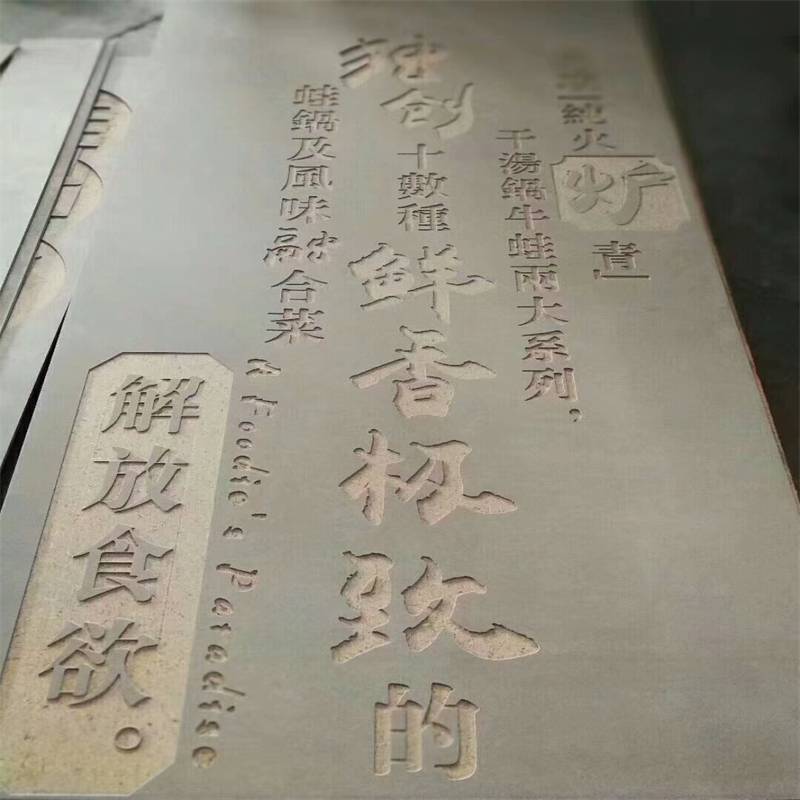 純火
炉
青」
干湯鍋牛蛙兩大系列,
独创十數種鮮香极致的
蛙鍋及風味融合菜
A Foodie's Paradise
解放食欲。